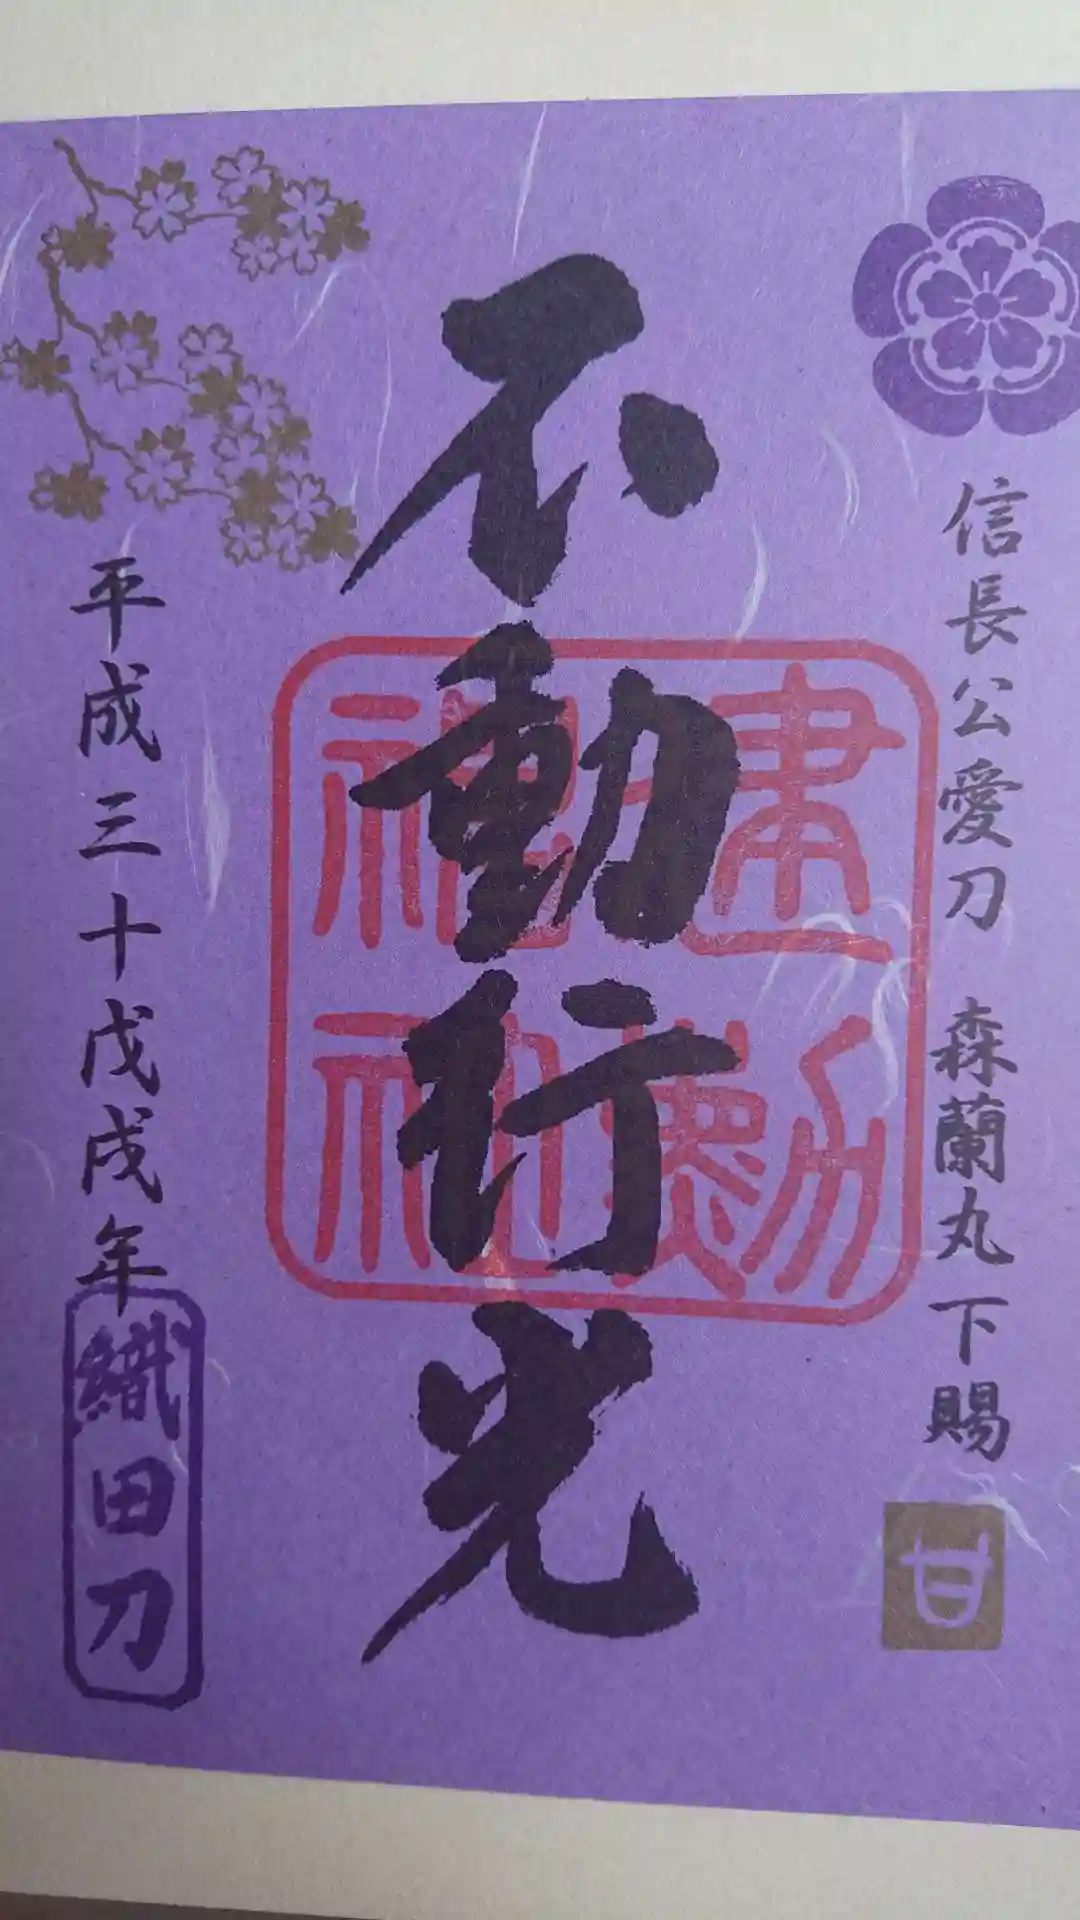 信長公愛刀 森蘭丸 下賜
甘
不動行光
建勲神社
平成三十戊戌年
織田刀